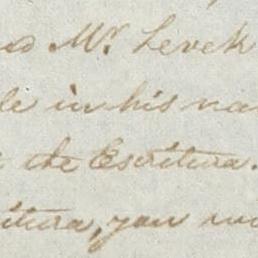 Mr. Levek
in his na
the Escritura.
itura, you